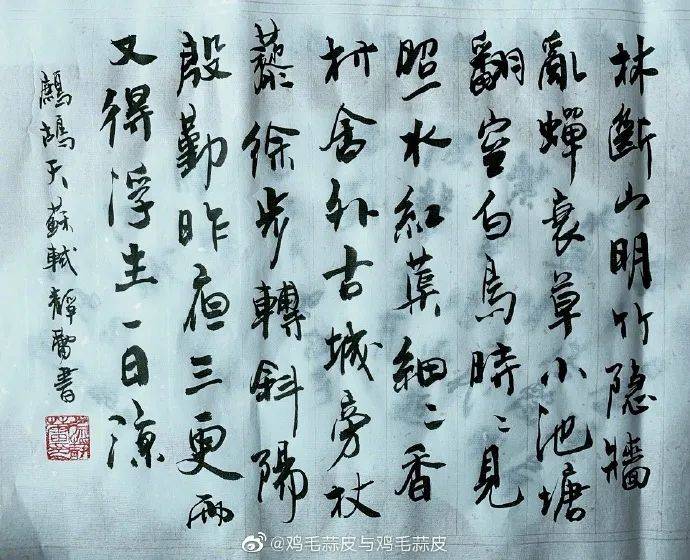 林斷山明竹隐牆
亂蟬衰草小池塘
翻空白鳥時〻見
照水紅蕖細〻香
村舍外古城旁杖
藜徐步轉斜陽
殷勤昨夜三更雨
又得浮生一日涼
鷓鴣天蘇軾靜蕾書
@鸡毛蒜皮与鸡毛蒜皮